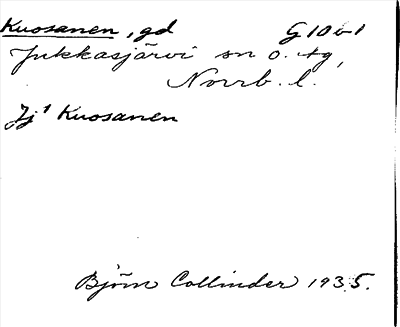 Kuosanen, gd G10b1
Jukkasjärvi sn o. tg,
Norrb. l.
Jj¹ Kuosanen
Björn Collinder 1935.